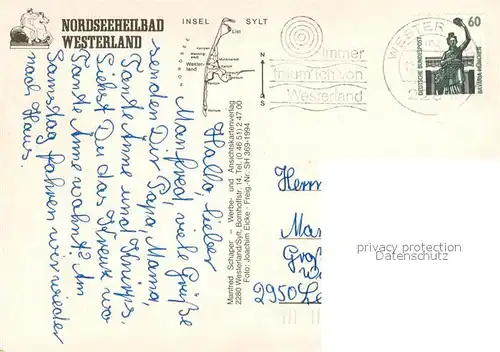 NORDSEEHEILBAD
WESTERLAND
INSEL SYLT
List
Kampen
Wenning-
stedt
Wester-
land
Keitum
Rantum
Hörnum
N
S
Immer
träum' ich von
Westerland
WESTER
60
DEUTSCHE BUNDESPOST
BAVARIA MÜNCHEN
Hallo, lieber
Manfred, viele Grüße
senden Dir Papa, Mama,
Tante Anne und Knirps.
Siehst Du das Kreuz wo
Tante Anne wohnt? Am
Samstag fahren wir wieder
nach Haus.
Manfred Schaper - Werbe- und Ansichtskartenverlag
2280 Westerland/Sylt, Bomhoffstr. 14, Tel. (0 46 51) 2 47 00
Foto: Joachim Eicke · Freig.-Nr. SH 369-1994
Herrn
Man
Groß
2950 Le
privacy protection
Datenschutz